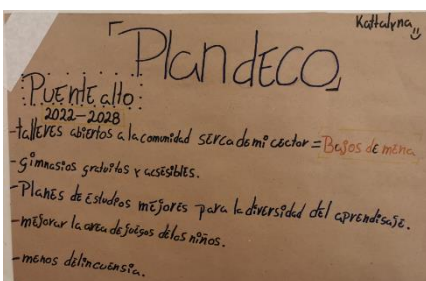 Kattalyna
PlandECO
PUENtE alto
2022-2028
-tallerEs abiertos a la comunidad serca de mi cector = Bajos dE mena
-gimnasios gratuitos y acsesibles.
-Planes de Estudios mEjores para la diversidad del aprendisaje.
-mejorar la area de juegos de los niños.
-menos delincuensia.